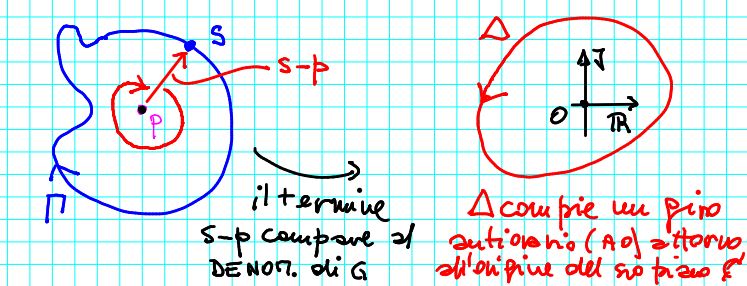 S
Δ
s-p
J
P
O
ℝ
Π
il termine
s-p compare al
DENOM. di G
Δ compie un giro
antiorario (AO) attorno
all'origine del suo piano